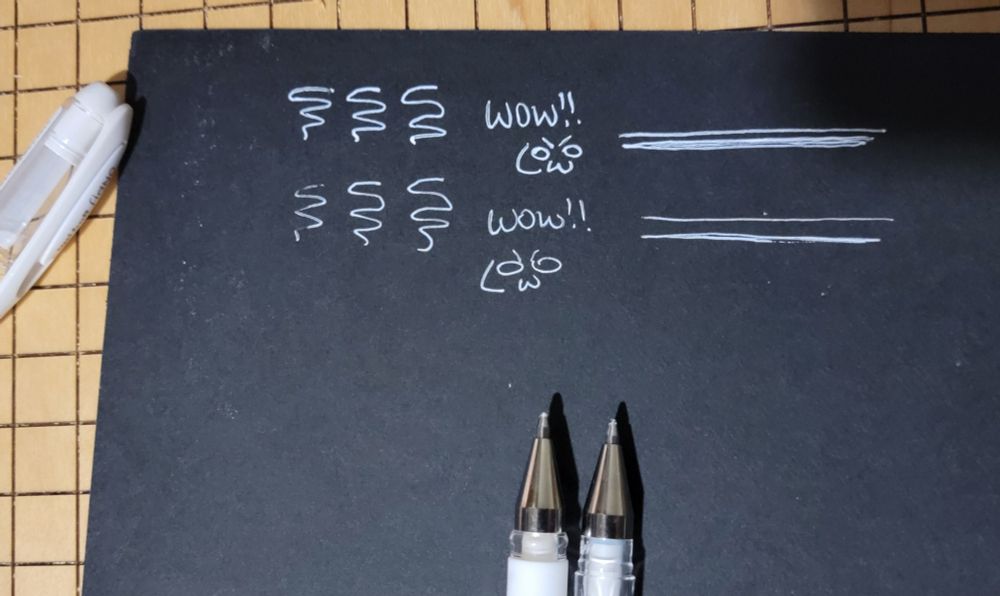 WOW!!
WOW!!